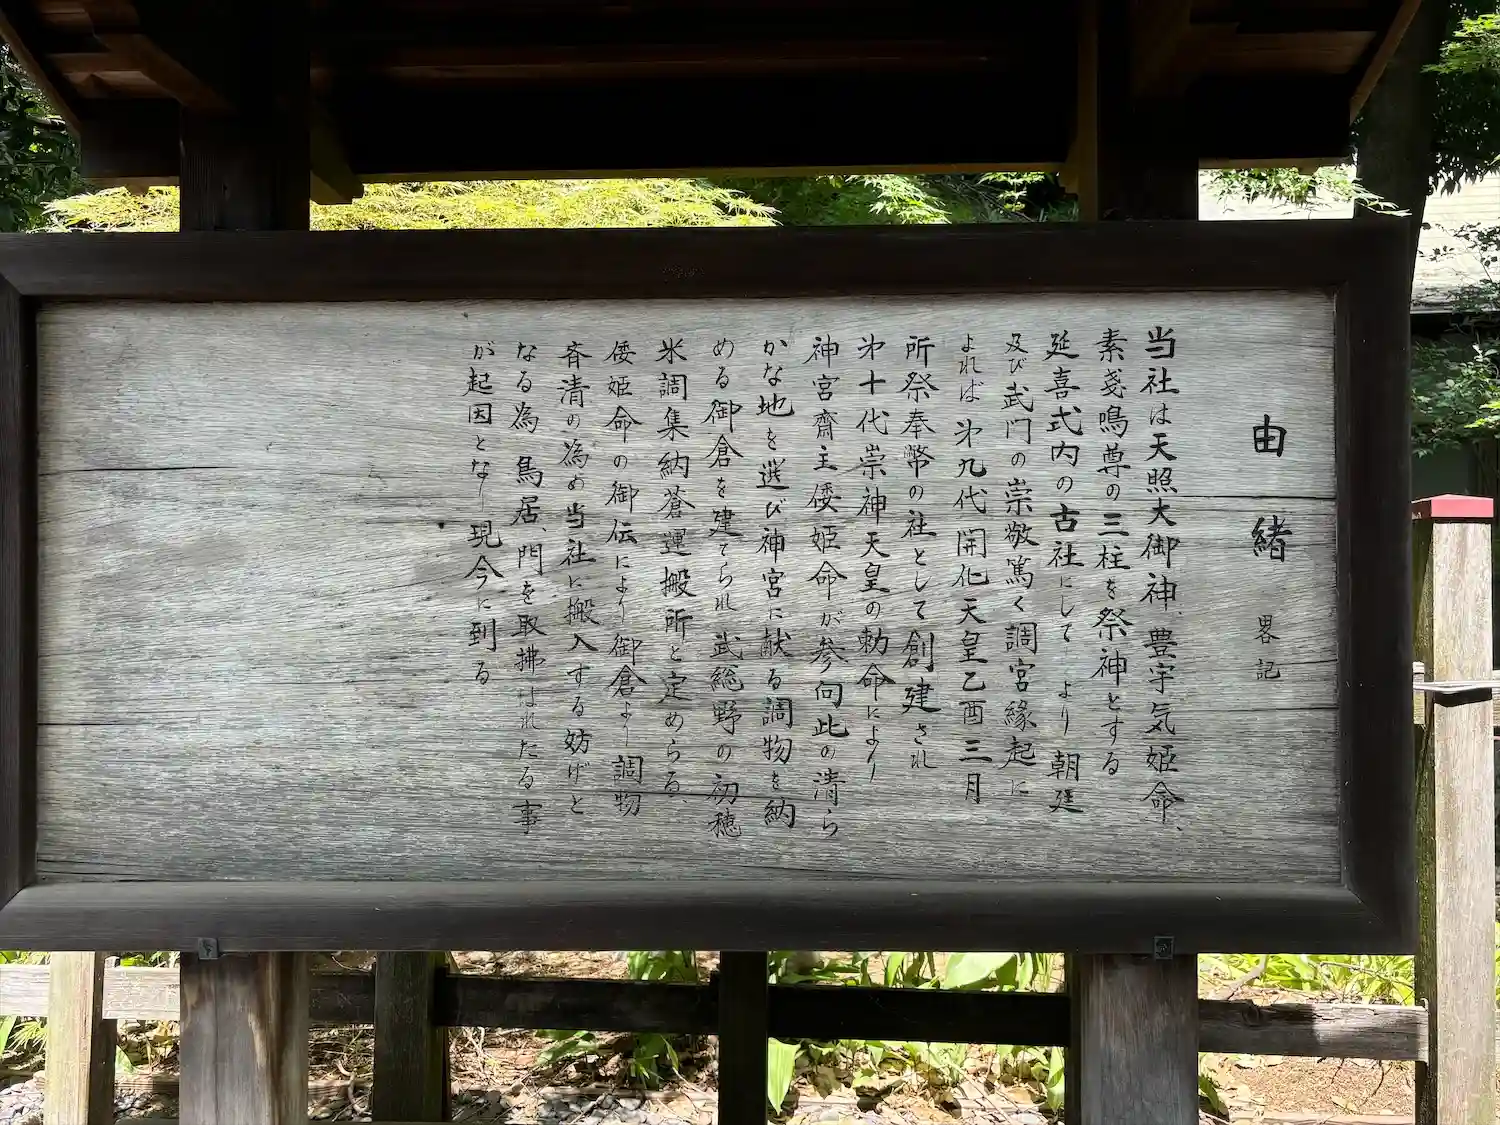 由緒 畧記
当社は天照大御神、豊宇気姫命、
素戔鳴尊の三柱を祭神とする
延喜式内の古社にして より 朝廷
及び武門の崇敬篤く調宮縁起に
よれば 㐧九代 開化天皇乙酉三月
所祭奉幣の社として創建され
㐧十代崇神天皇の勅命により
神宮齋主倭姫命が参向此の清ら
かな地を選び神宮に献る調物を納
める御倉を建てられ 武総野の初穂
米調集納蒼運搬所と定めらる、
倭姫命の御伝により御倉より調物
斉清の為め当社に搬入する妨げと
なる為 鳥居、門を取拂はれたる事
が起因となり現今に到る